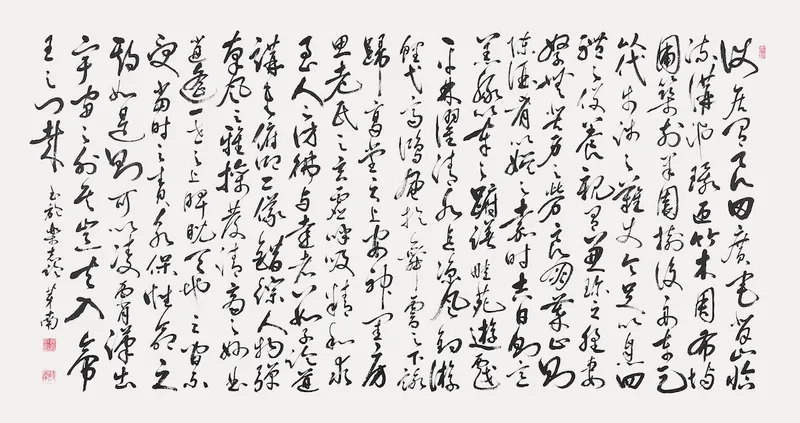 使居有良田廣宅背山臨
流溝池環匝竹木周布場
圃築前果園樹後舟車足
以代步涉之難使令足以息四
體之役養親有兼珍之膳妻
孥無苦身之勞良朋萃止則
陳酒肴以娛之嘉時吉日則烹
羔豚以奉之躕躇畦苑遊戲
平林濯清水追涼風釣游
鯉弋高鴻風於舞雩之下詠
歸高堂之上安神閨房
思老氏之玄虛呼吸精和求
至人之彷彿與達者數子論道
講書俯仰二儀錯綜人物彈
南風之雅操發清商之妙曲
逍遙一世之上睥睨天地之間不
受當時之責永保性命之
期如是則可以凌霄漢出
宇宙之外矣豈羨夫入帝
王之門哉
樂志論